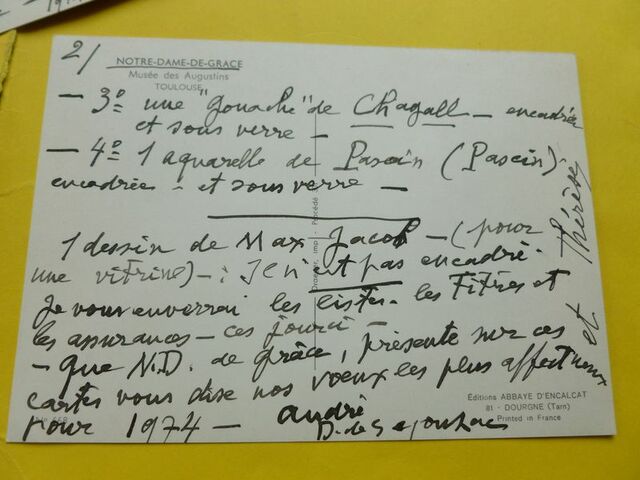 2/
NOTRE-DAME-DE-GRACE
Musée des Augustins
TOULOUSE
— 3º une "gouache" de Chagall — encadrée
et sous verre —
— 4º 1 aquarelle de Pascin (Pascin)
encadrée - et sous verre —
1 dessin de Max Jacob — (pour
une vitrine) — : Je n'ai pas encadré.
Je vous enverrai les listes - les Titres et
les assurances — ces jours-ci —
— que N.D. de grâce, présente sur ces
cartes vous dise nos vœux les plus affectueux
pour 1974 — andré
et Thérèse
Editions ABBAYE D'ENCALCAT
81 - DOURGNE (Tarn)
Printed in France